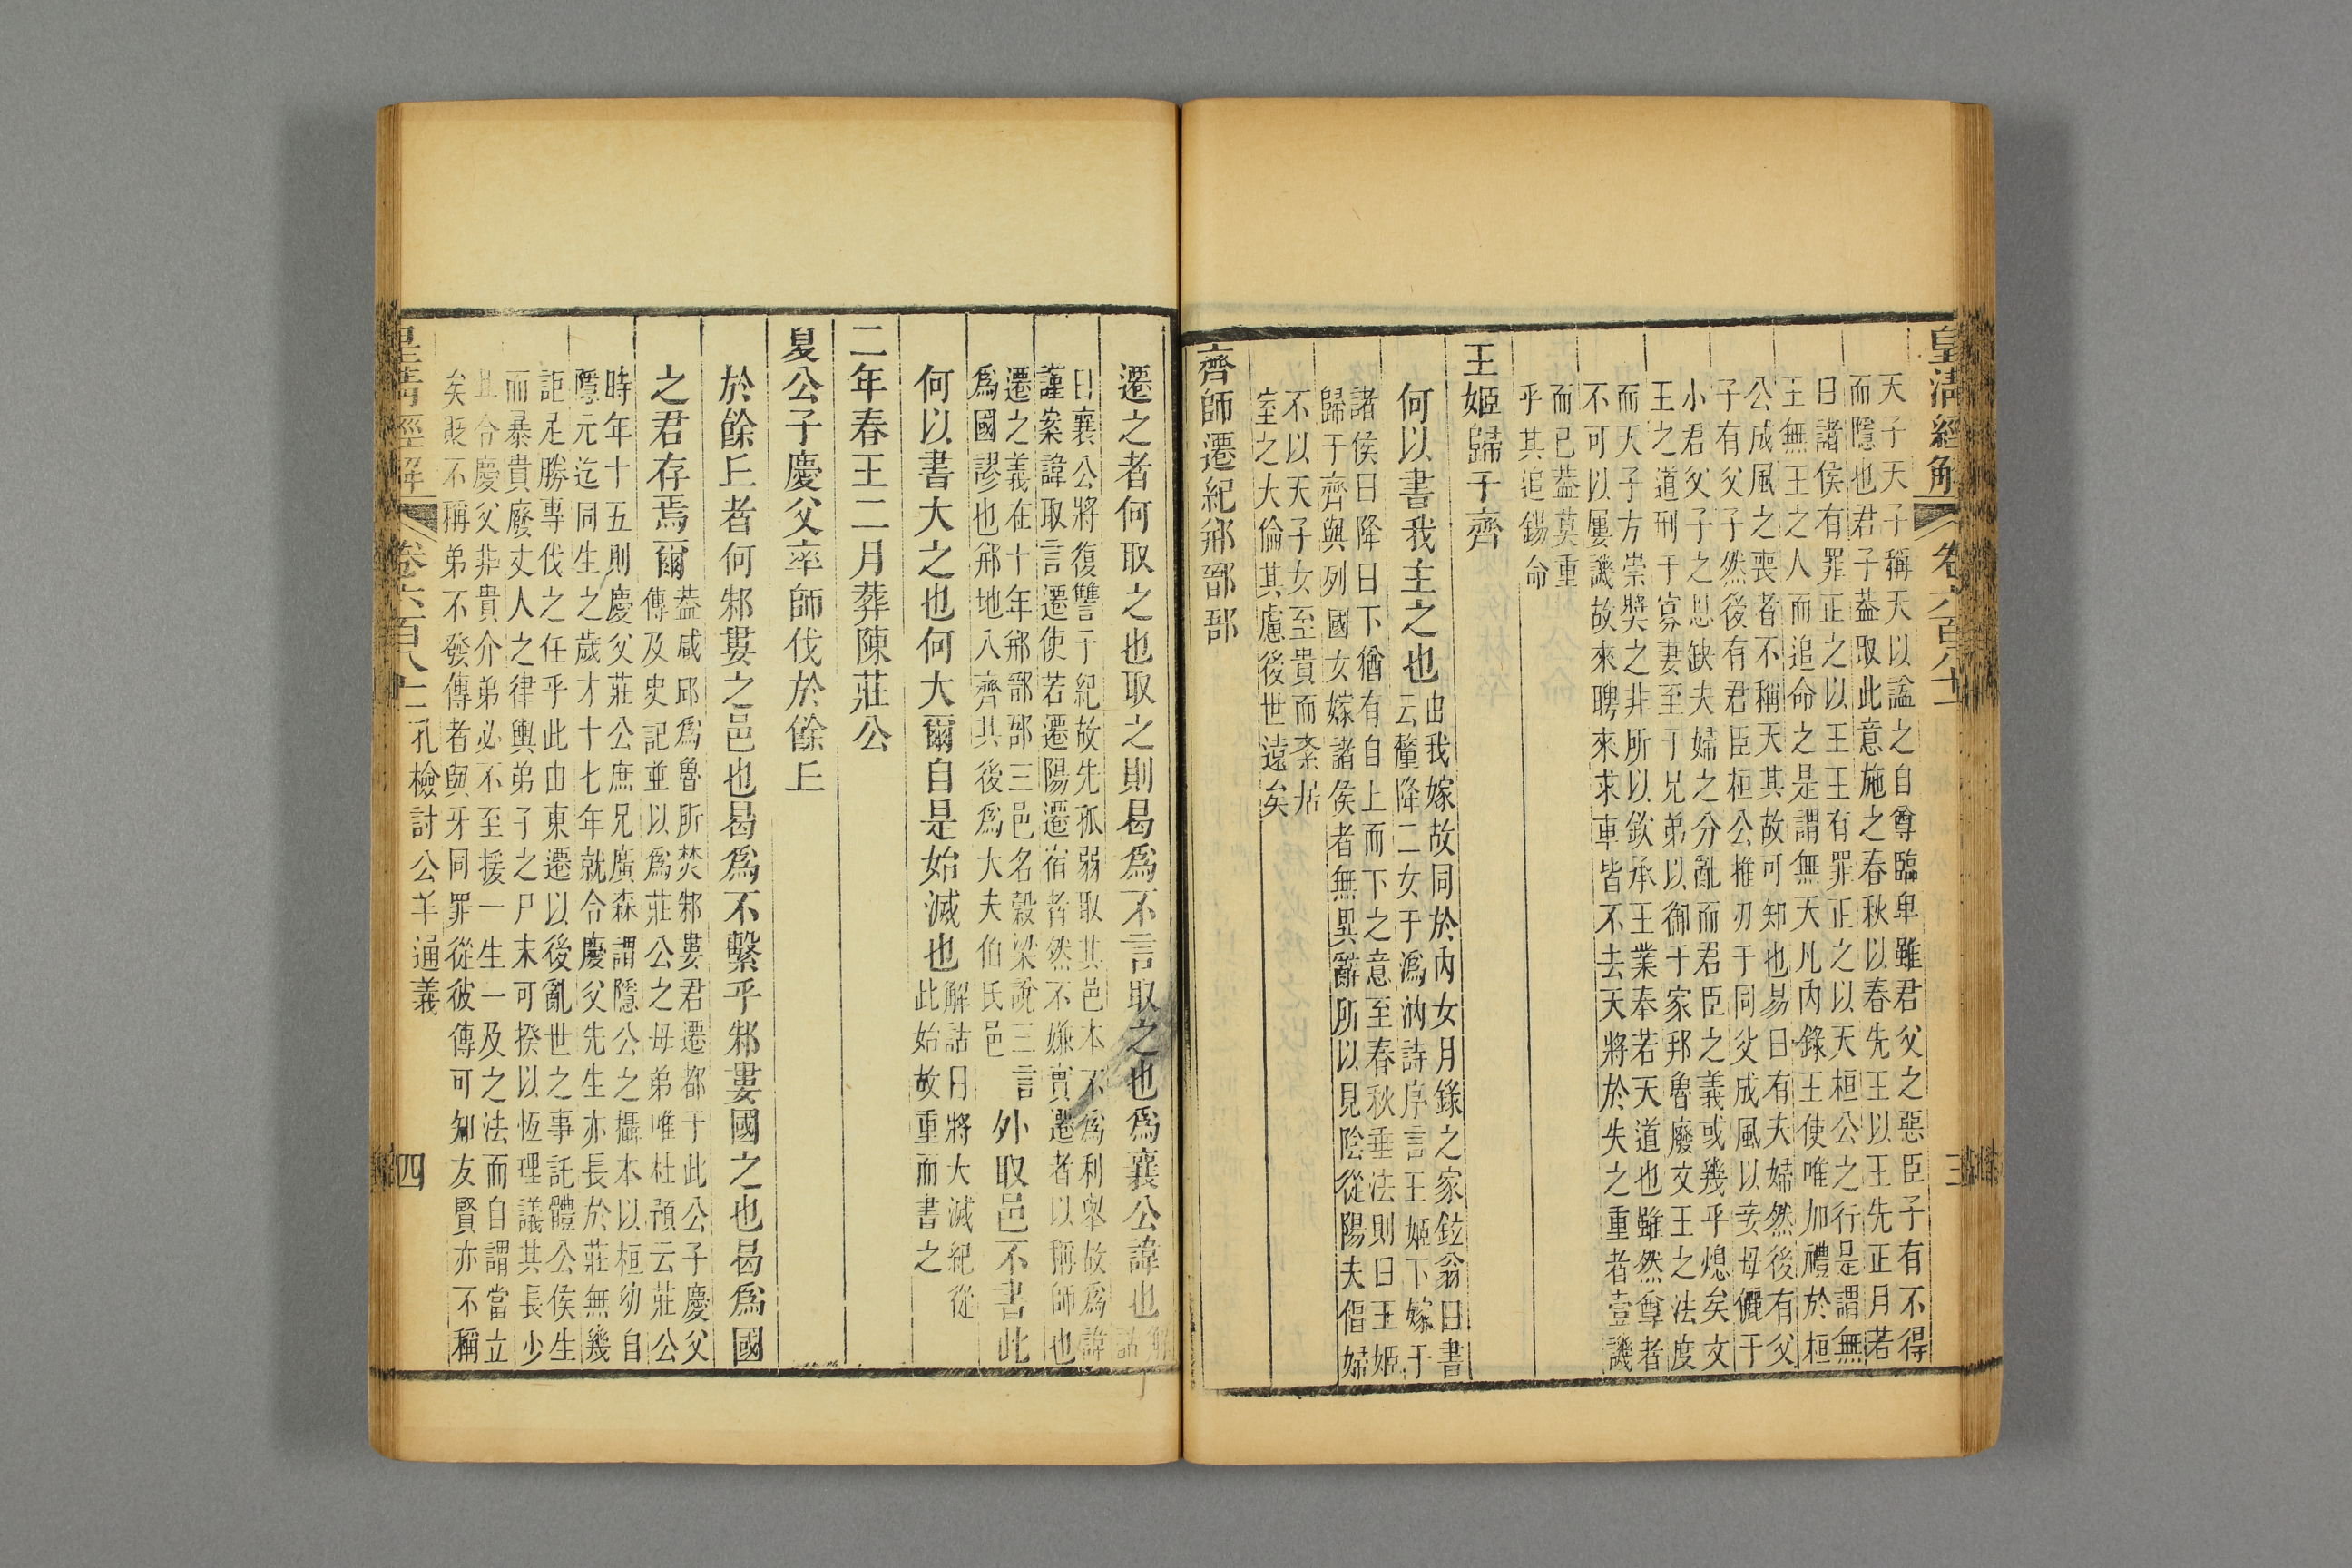 皇清經解 卷六百八十 三
天子天子稱天以謚之自尊臨卑雖君父之惡臣子有不得
而隱也君子蓋取此意施之春秋以春先王以王先正月若
曰諸侯有罪正之以王王有罪正之以天桓公之行是謂無
王無王之人而追命之是謂無天凡內錄王使唯加禮於桓
公成風之喪者不稱天其故可知也易曰有夫婦然後有父
子有父子然後有君臣桓公推刃于同父成風以妾母儷于
小君父子之恩缺夫婦之分亂而君臣之義或幾乎熄矣文
王之道刑于寡妻至于兄弟以御于家邦魯廢文王之法度
而天子方崇獎之非所以欽承王業奉若天道也雖然尊者
不可以屢譏故來聘來求車皆不去天將於失之重者壹譏
而已蓋莫重
乎其追錫命
王姬歸于齊
何以書我主之也
由我嫁故同於內女月錄之家鉉翁曰書
云釐降二女于溈汭詩序言王姬下嫁于
諸侯曰降曰下猶有自上而下之意至春秋垂法則曰王姬
歸于齊與列國女嫁諸侯者無異辭所以見陰從陽夫倡婦
不以天子女至貴而紊居
室之大倫其慮後世遠矣
齊師遷紀郱鄑郚
遷之者何取之也取之則曷爲不言取之也爲襄公諱也
解
詁
曰襄公將復讐于紀故先孤弱取其邑本不爲利舉故爲諱
謹案諱取言遷使若遷陽遷宿者然不嫌實遷者以稱師也
遷之義在十年郱鄑郚三邑名穀梁說三言
爲國謬也郱地入齊其後爲大夫伯氏邑
外取邑不書此
何以書大之也何大爾自是始滅也
解詁曰將大滅紀從
此始故重而書之
二年春王二月葬陳莊公
夏公子慶父率師伐於餘丘
於餘丘者何邾婁之邑也曷爲不繫乎邾婁國之也曷爲國
之君存焉爾
蓋咸邱爲魯所焚邾婁君遷都于此公子慶父
傳及史記並以爲莊公之母弟唯杜預云莊公
時年十五則慶父莊公庶兄廣森謂隱公之攝本以桓幼自
隱元迄同生之歲才十七年就令慶父先生亦長於莊無幾
詎足勝專伐之任乎此由東遷以後亂世之事託體公侯生
而暴貴廢丈人之律輿弟子之尸未可揆以恆理議其長少
且令慶父非貴介弟必不至援一生一及之法而自謂當立
矣貶不稱弟不發傳者與牙同罪從彼傳可知友賢亦不稱
皇清經解 卷六百八十 孔檢討公羊通義 四